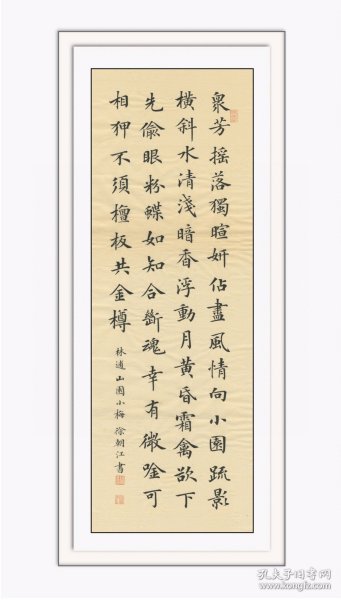 衆芳摇落獨暄妍佔盡風情向小園疏影
橫斜水清淺暗香浮動月黄昏霜禽欲下
先偷眼粉蝶如知合斷魂幸有微唫可
相狎不須檀板共金樽
林逋山園小梅 徐朝江書
孔夫子旧书网